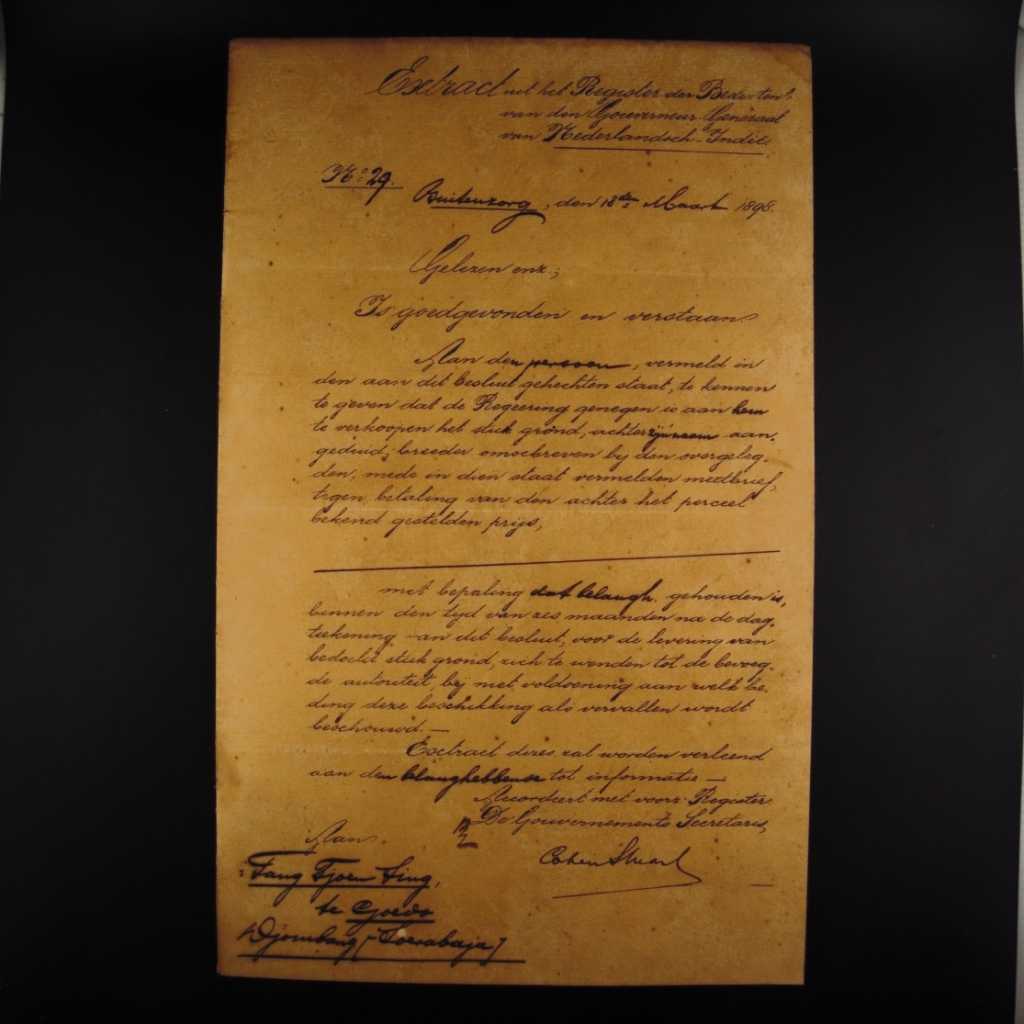 Extract uit het Register der Besluiten
van den Gouverneur Generaal
van Nederlandsch-Indië.
No. 29.
Buitenzorg, den 18den Maart 1898.
Gelezen enz.;
Is goedgevonden en verstaan:
Aan den persoon, vermeld in
den aan dit besluit gehechten staat, te kennen
te geven dat de Regeering genegen is aan hem
te verkoopen het stuk grond, achter zijn naam aan-
geduid, breeder omschreven bij den overgeleg-
den, mede in dien staat vermelden meetbrief,
tegen betaling van den achter het perceel
bekend gestelden prijs,
met bepaling dat belangh. gehouden is,
binnen den tijd van zes maanden na de dag-
teekening van dit besluit, voor de levering van
bedoeld stuk grond, zich te wenden tot de bevoeg-
de autoriteit, bij niet voldoening aan welk be-
ding deze beschikking als vervallen wordt
beschouwd.—
Extract dezes zal worden verleend
aan den belanghebbende tot informatie—
Accordeert met voorz. Register
De Gouvernements Secretaris,
Cohen Stuart
Aan
Tang Tjoen Sing,
te Goedo
/Djombang [Soerabaja]